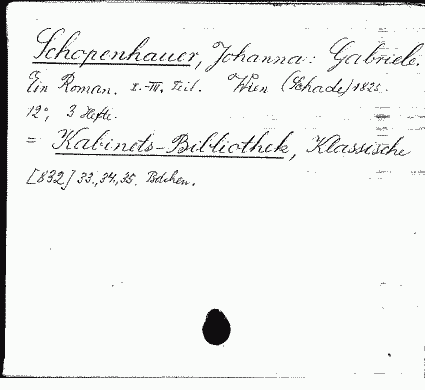 Schopenhauer, Johanna: Gabriele.
Ein Roman. I.-III. Teil. Wien (Schade) 1825.
12°, 3 Hefte.
= Kabinets-Bibliothek, Klassische
[832] 33., 34., 35. Bdchen.